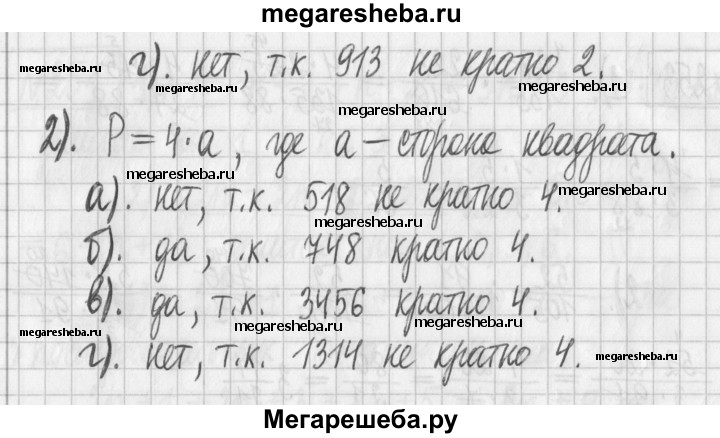 megaresheba.ru
megaresheba.ru
г). нет, т.к. 913 не кратно 2.
megaresheba.ru
megaresheba.ru
megaresheba.ru
2). P = 4·a, где a – сторона квадрата.
megaresheba.ru
megaresheba.ru
а). нет, т.к. 518 не кратно 4.
megaresheba.ru
б). да, т.к. 748 кратно 4.
в). да, т.к. 3456 кратно 4.
megaresheba.ru
megaresheba.ru
megaresheba.ru
г). нет, т.к. 1314 не кратно 4.
megaresheba.ru
Мегарешеба.ру